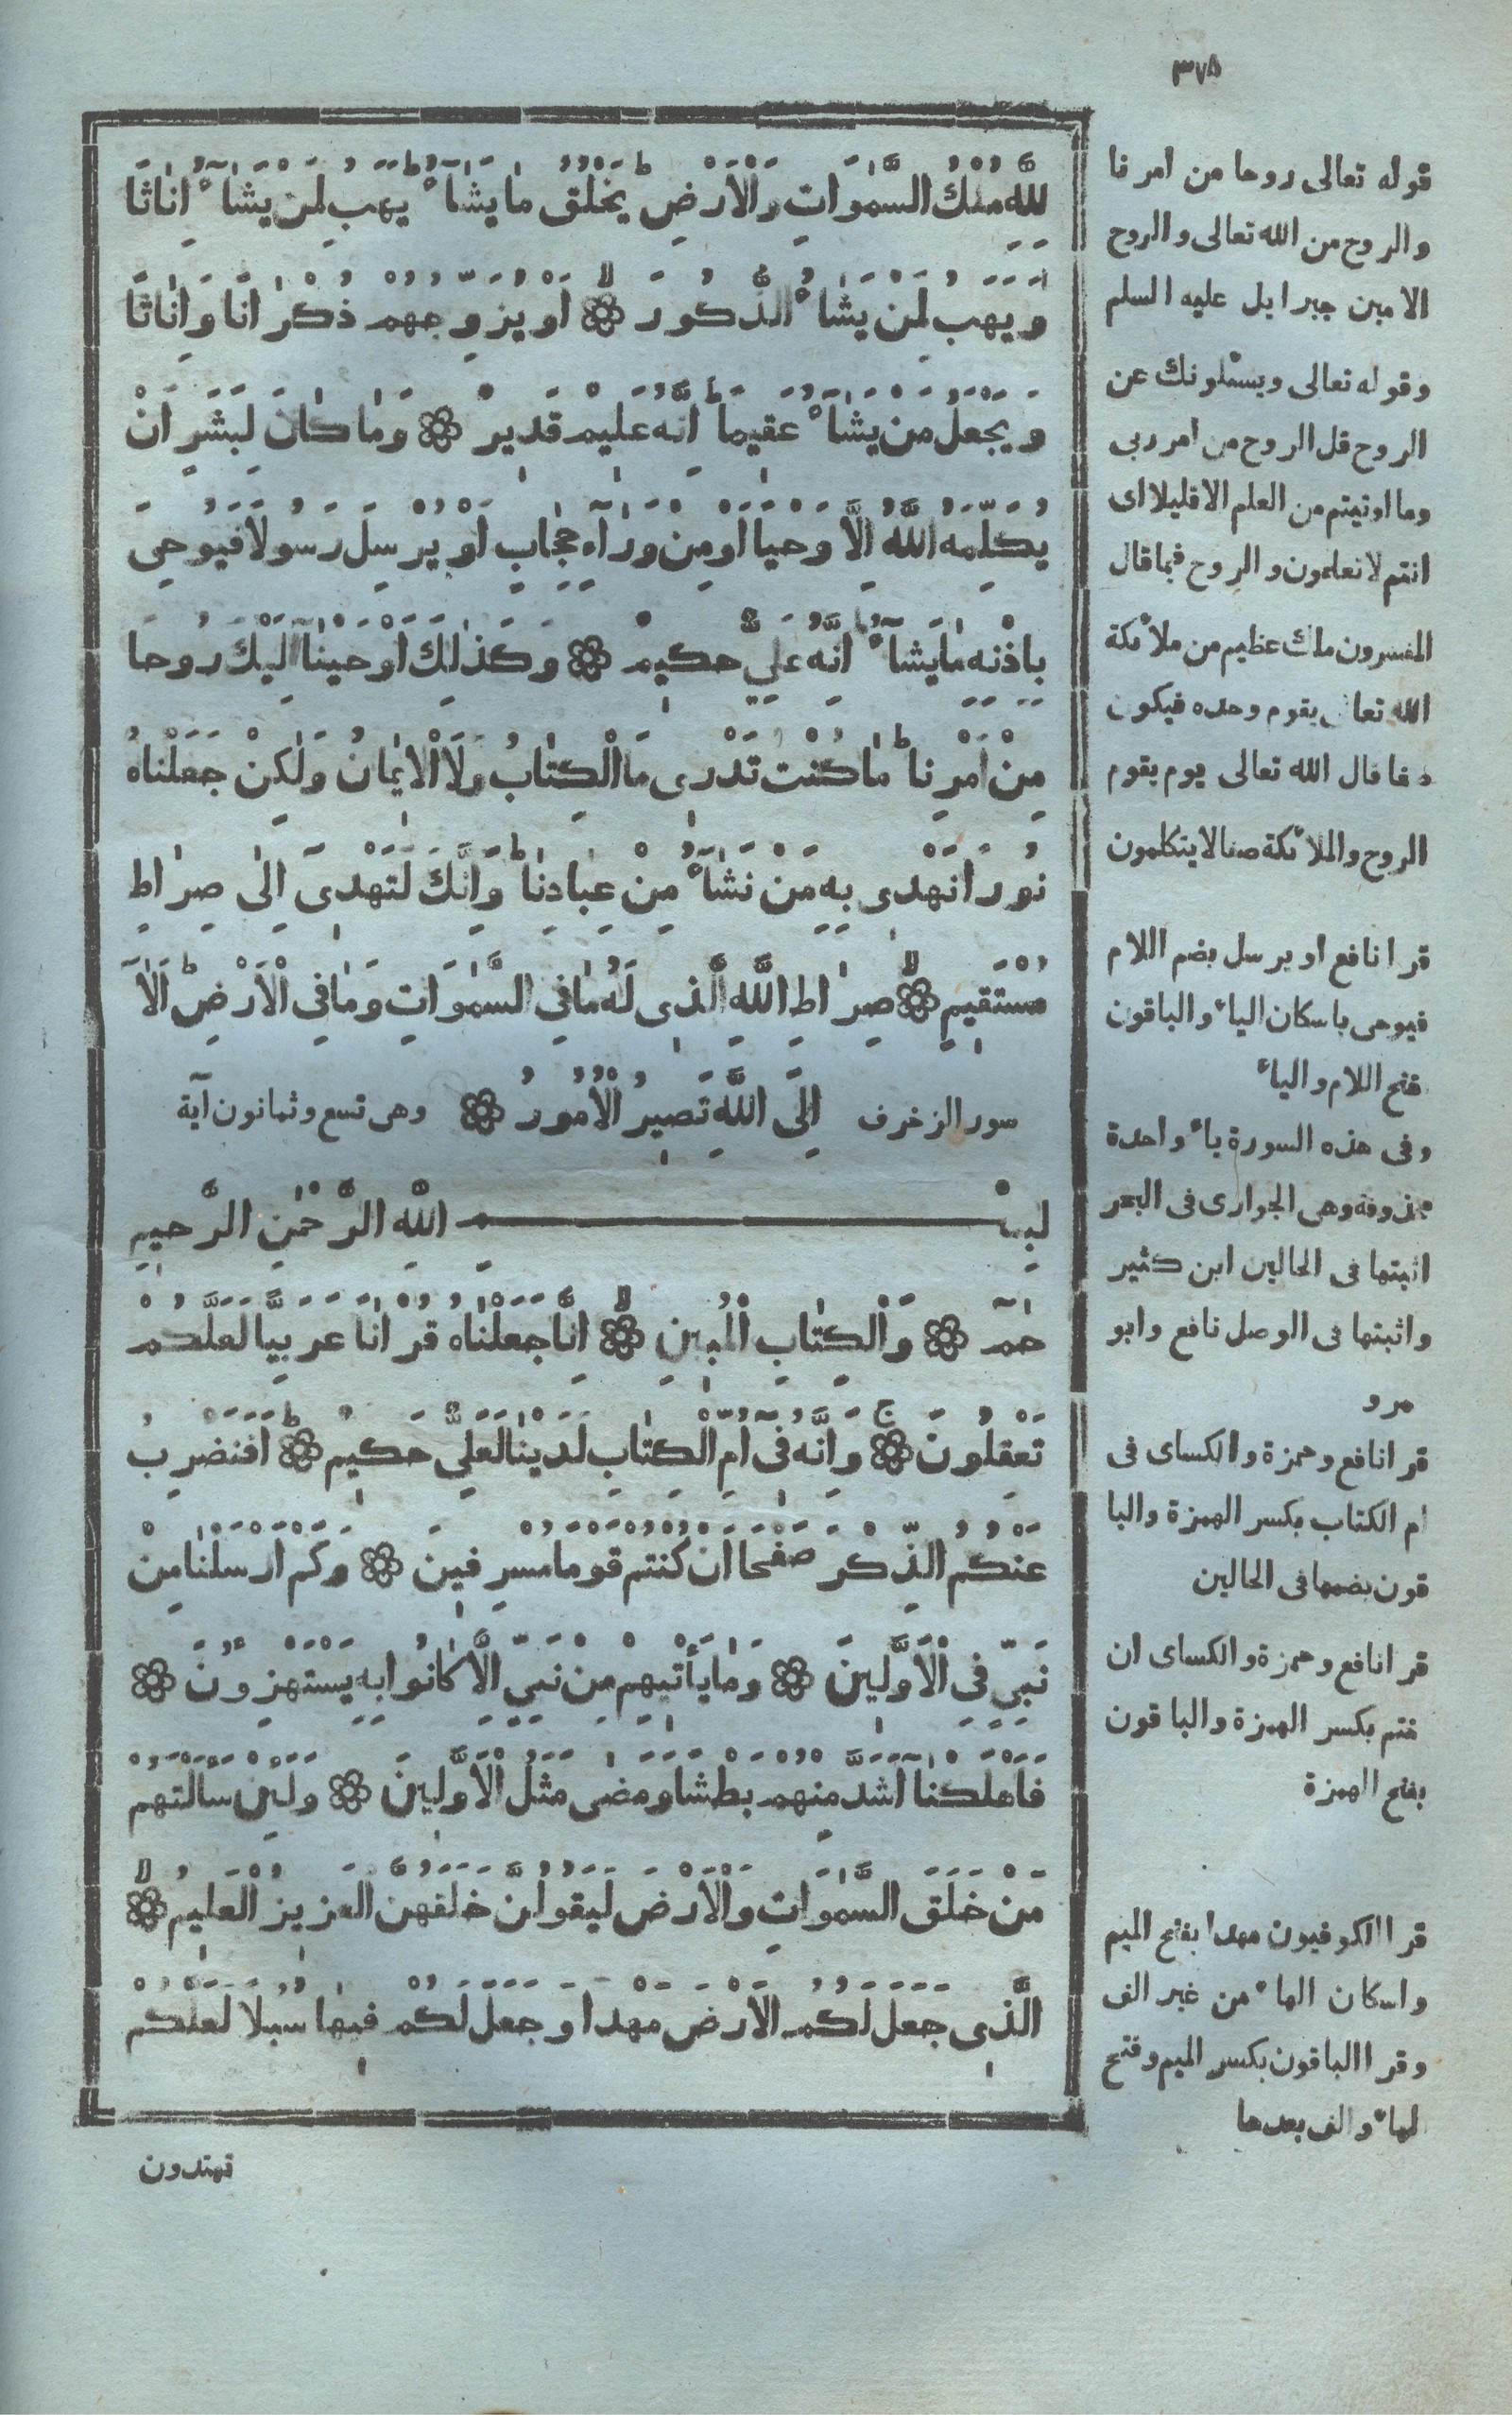 ٣٧٥
لِلّٰهِ مُلْكُ السَّمٰوَاتِ وَالْاَرْضِ ط يَخْلُقُ مٰا يَشٰآءُ ط يَهَبُ لِمَنْ يَشٰآءُ اِنٰاثًا
وَيَهَبُ لِمَنْ يَشٰآءُ الذُّكُورَ لا اَوْ يُزَوِّجُهُمْ ذُكْرٰانًا وَاِنٰاثًا
وَيَجْعَلُ مَنْ يَشٰآءُ عَقِيمًا ط اِنَّهُ عَلِيْمٌ قَدِيرٌ وَمٰا كٰانَ لِبَشَرٍ اَنْ
يُكَلِّمَهُ اللّٰهُ اِلَّا وَحْيًا اَوْ مِنْ وَرٰآءِ حِجٰابٍ اَوْ يُرْسِلَ رَسُولًا فَيُوحِىَ
بِاِذْنِهِ مٰا يَشٰآءُ اِنَّهُ عَلِيٌّ حَكِيمٌ وَكَذٰلِكَ اَوْحَيْنٰآ اِلَيْكَ رُوحًا
مِنْ اَمْرِنٰا ط مٰا كُنْتَ تَدْرِى مَا الْكِتٰابُ وَلَا الْاِيمٰانُ وَلٰكِنْ جَعَلْنٰاهُ
نُورًا نَهْدِى بِهِ مَنْ نَشٰآءُ مِنْ عِبٰادِنٰا ط وَاِنَّكَ لَتَهْدِىٓ اِلٰى صِرٰاطٍ
مُسْتَقِيمٍ لا صِرٰاطِ اللّٰهِ الَّذِى لَهُ مٰا فِى السَّمٰوَاتِ وَمٰا فِى الْاَرْضِ ط اَلَآ
سورالزخرف اِلَى اللّٰهِ تَصِيرُ الْاُمُورُ وهى تسع وثمانون آية
بِسْمِ اللّٰهِ الرَّحْمٰنِ الرَّحِيمِ
حٰمٓ وَالْكِتٰابِ الْمُبِينِ لا اِنَّا جَعَلْنٰاهُ قُرْاٰنًا عَرَبِيًّا لَعَلَّكُمْ
تَعْقِلُونَ ج وَاِنَّهُ فِىٓ اُمِّ الْكِتٰابِ لَدَيْنٰا لَعَلِىٌّ حَكِيمٌ ط اَفَنَضْرِبُ
عَنْكُمُ الذِّكْرَ صَفْحًا اَنْ كُنْتُمْ قَوْمًا مُسْرِفِينَ وَكَمْ اَرْسَلْنٰا مِنْ
نَبِيٍّ فِى الْاَوَّلِينَ وَمٰا يَأْتِيهِمْ مِنْ نَبِيٍّ اِلَّا كٰانُوا بِهِ يَسْتَهْزِؤُنَ
فَاَهْلَكْنٰآ اَشَدَّ مِنْهُمْ بَطْشًا وَمَضٰى مَثَلُ الْاَوَّلِينَ وَلَئِنْ سَأَلْتَهُمْ
مَنْ خَلَقَ السَّمٰوَاتِ وَالْاَرْضَ لَيَقُولُنَّ خَلَقَهُنَّ الْعَزِيزُ الْعَلِيمُ لا
الَّذِى جَعَلَ لَكُمُ الْاَرْضَ مَهْدًا وَجَعَلَ لَكُمْ فِيهٰا سُبُلًا لَعَلَّكُمْ
تهتدون
قوله تعالى روحا من امرنا
والروح من الله تعالى والروح
الامين جبرايل عليه السلم
وقوله تعالى ويسئلونك عن
الروح قل الروح من امر ربى
وما اوتيتم من العلم الا قليلا اى
انتم لا تعلمون والروح فيما قال
المفسرون ملك عظيم من ملائكة
الله تعالى يقوم وحده فيكون
صفا قال الله تعالى يوم يقوم
الروح والملائكة صفا لا يتكلمون
قرا نافع او يرسل بضم اللام
فيوحى باسكان الياء والباقون
فتح اللام والياء
وفى هذه السورة ياء واحدة
محذوفة وهى الجوارى فى البحر
اثبتها فى الحالين ابن كثير
واثبتها فى الوصل نافع وابو
مرو
قرا نافع وحمزة والكساى فى
ام الكتاب بكسر الهمزة والبا
قون بضمها فى الحالين
قرا نافع وحمزة والكساى ان
نتم بكسر الهمزة والباقون
بفتح الهمزة
قرا الكوفيون مهدا بفتح الميم
واسكان الهاء من غير الف
وقرا الباقون بكسر الميم وفتح
لهاء والف بعدها